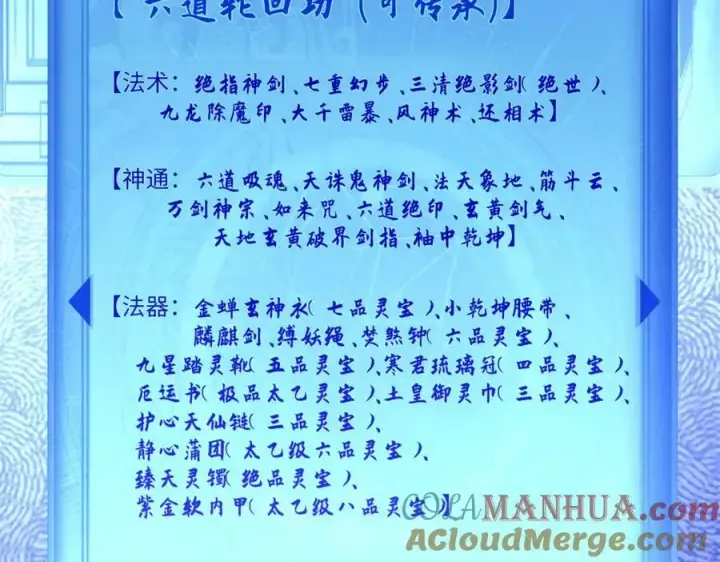 【六道轮回功（可传承）】
【法术：绝指神剑、七重幻步、三清绝影剑（绝世）、
九龙除魔印、大千雷暴、风神术、还相术】
【神通：六道吸魂、天诛鬼神剑、法天象地、筋斗云、
万剑神宗、如来咒、六道绝印、玄黄剑气、
天地玄黄破界剑指、袖中乾坤】
【法器：金蝉玄神衣（七品灵宝）、小乾坤腰带、
麟麒剑、缚妖绳、焚煞钟（六品灵宝）、
九星踏灵靴（五品灵宝）、寒君琉璃冠（四品灵宝）、
厄运书（极品太乙灵宝）、土皇御灵巾（三品灵宝）、
护心天仙链（三品灵宝）、
静心蒲团（太乙级六品灵宝）、
臻天灵镯（绝品灵宝）、
紫金软内甲（太乙级八品灵宝）】
COLAMANHUA.com
ACloudMerge.com